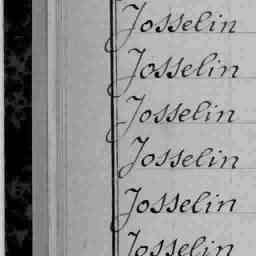 Josselin
Josselin
Josselin
Josselin
Josselin
Josselin